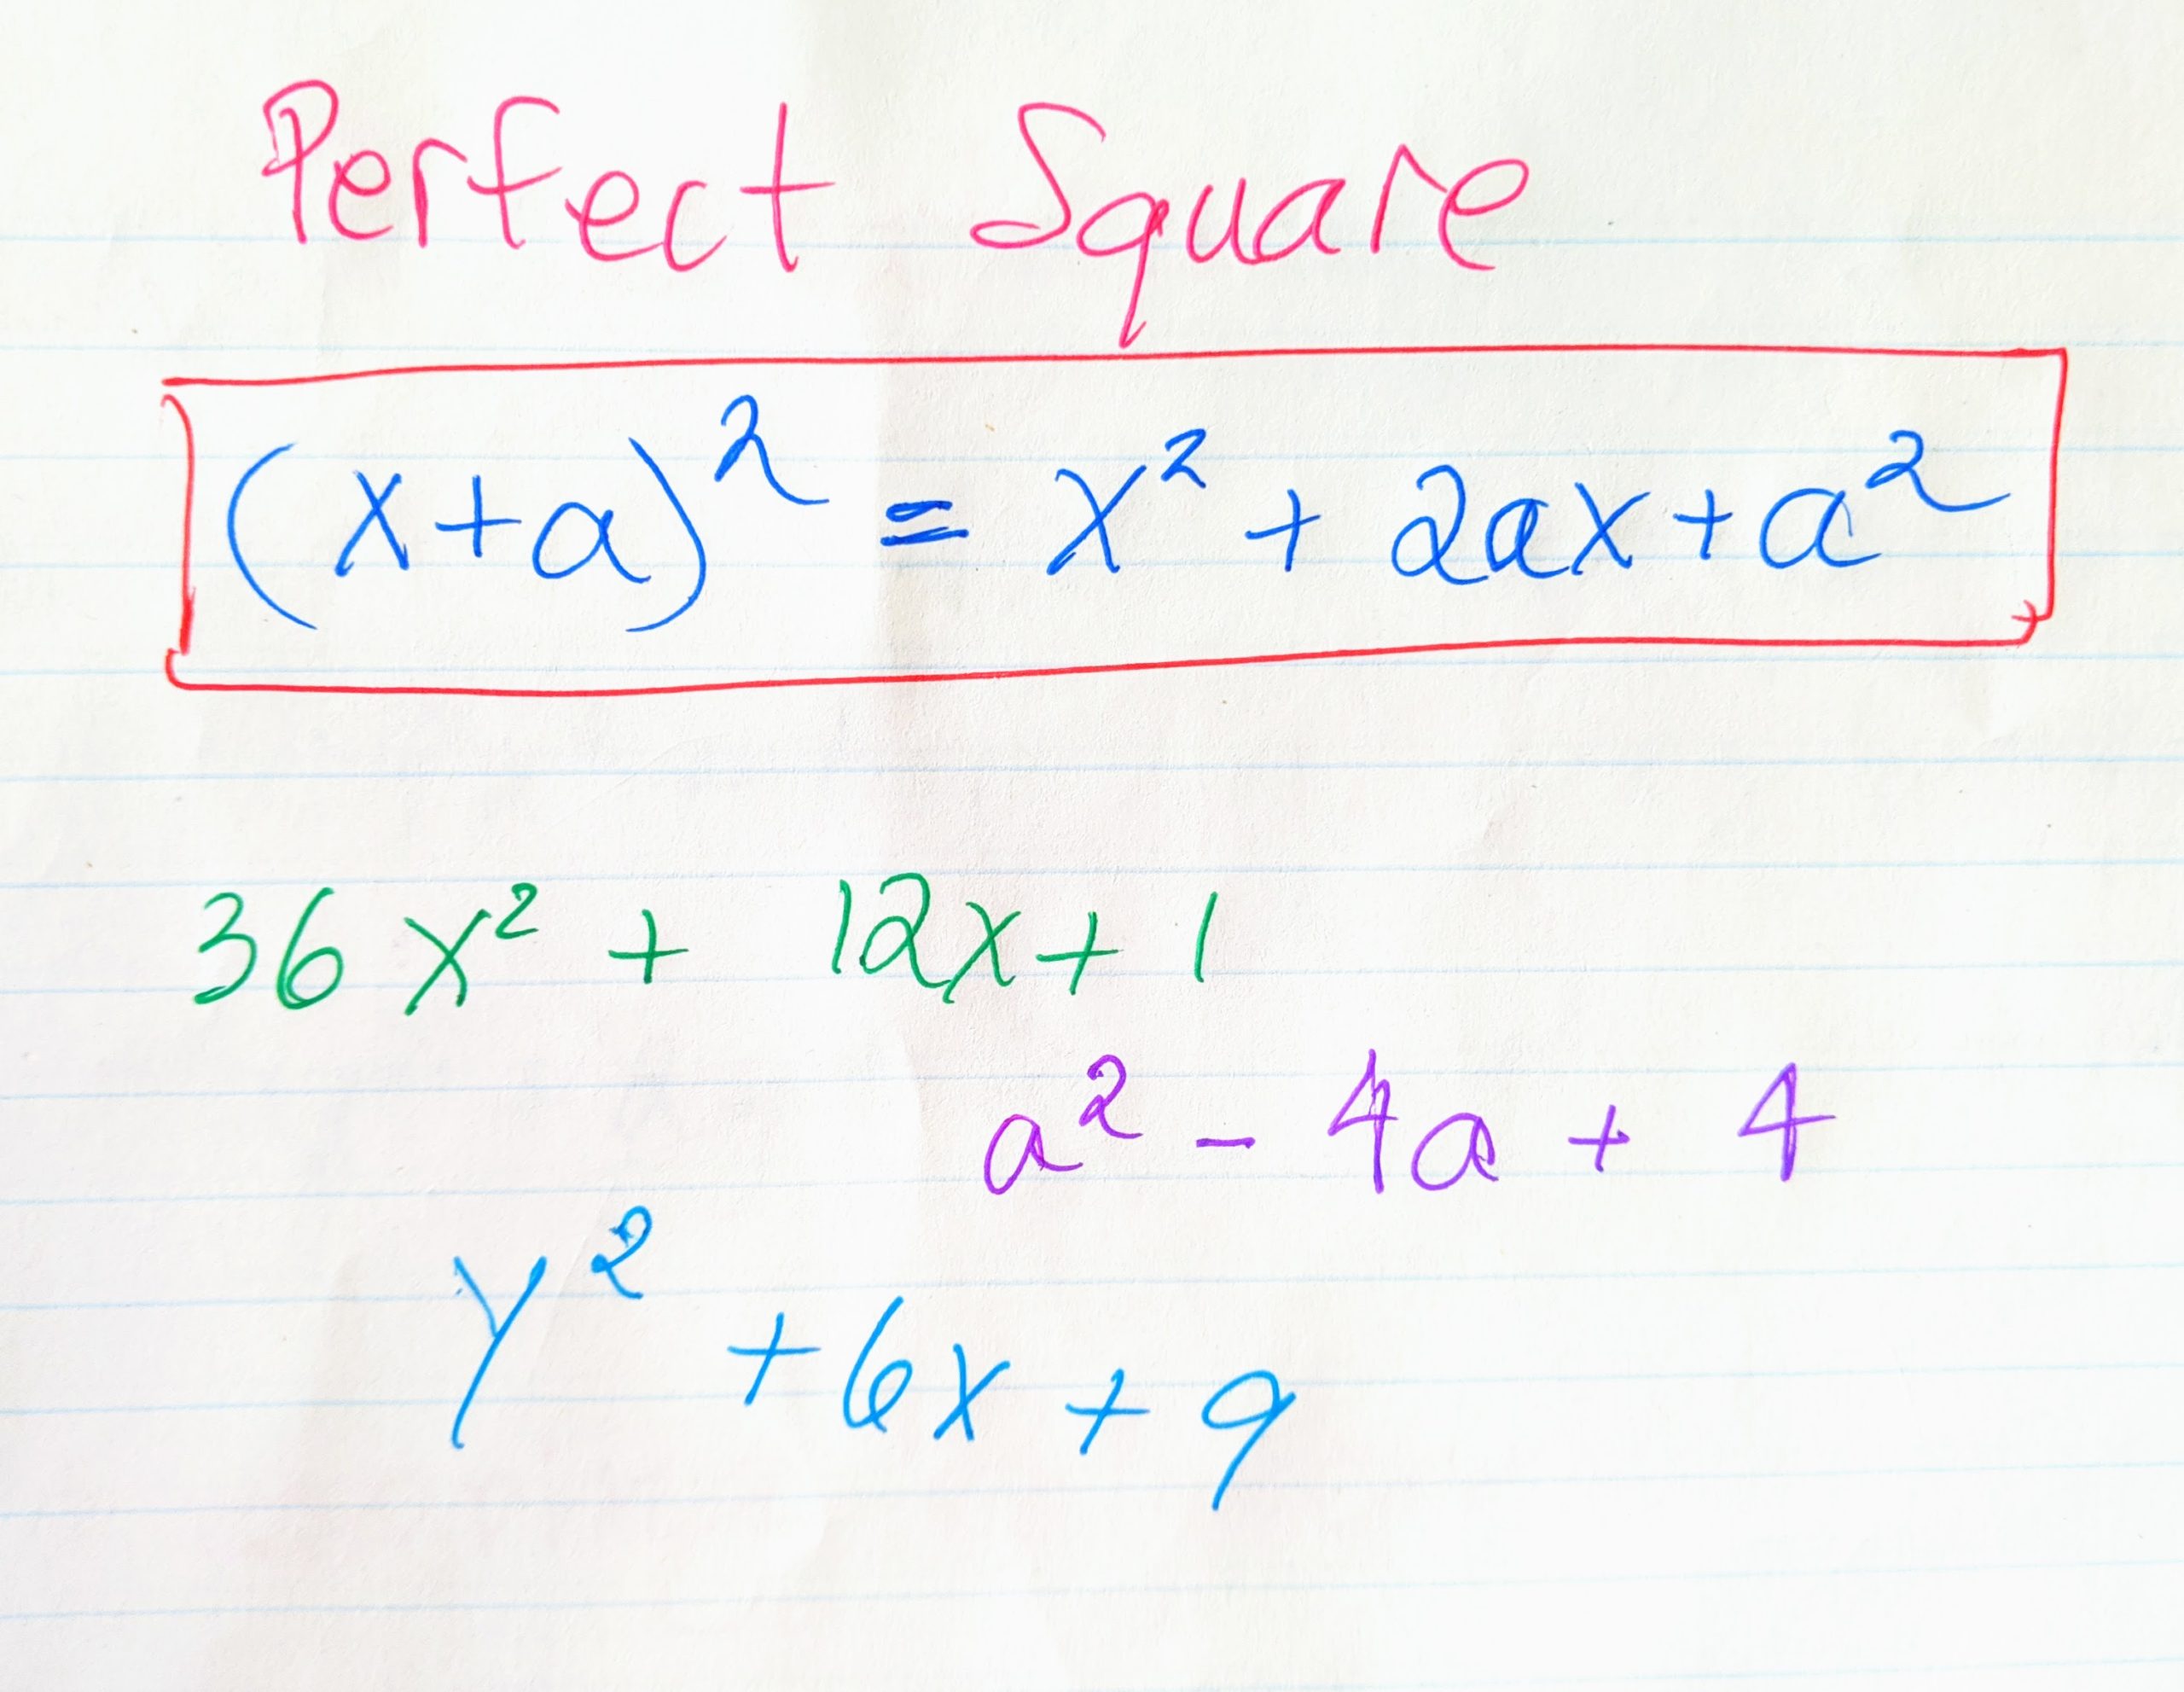 Perfect Square
(x+a)² = x² + 2ax+a²
36x² + 12x+1
a² - 4a + 4
y² +6x + 9